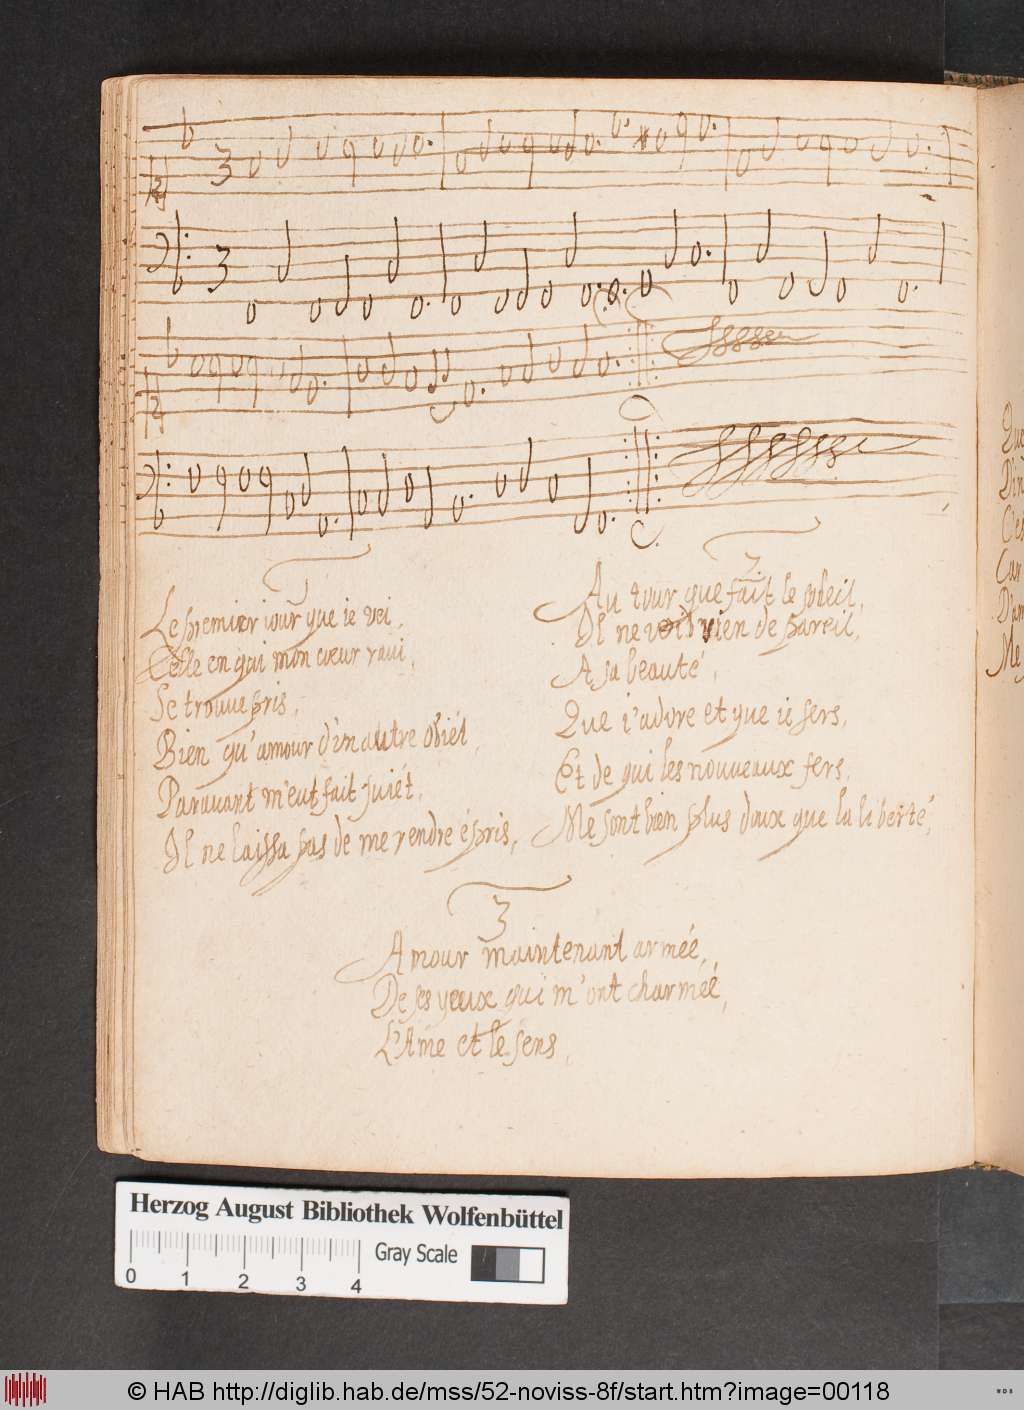 3
3
1
Le premier iour que ie vei,
Celle en qui mon cœur raui,
Se trouue pris,
Bien qu'amour d'ìn autre obiét,
Parauant m'eut fait suiét,
Il ne laissa pas de me rendre épris,
2.
Au tour que fait le soleil,
Il ne void rien de pareil,
A sa beauté,
Que i'adore et que ie sers,
Et de qui les nouueaux fers,
Me sont bien plus doux que la liberté,
3
Amour maintenant armée,
De ses yeux qui m'ont charméé,
L'Ame et le sens,
Herzog August Bibliothek Wolfenbüttel
Gray Scale
0 1 2 3 4
© HAB http://diglib.hab.de/mss/52-noviss-8f/start.htm?image=00118